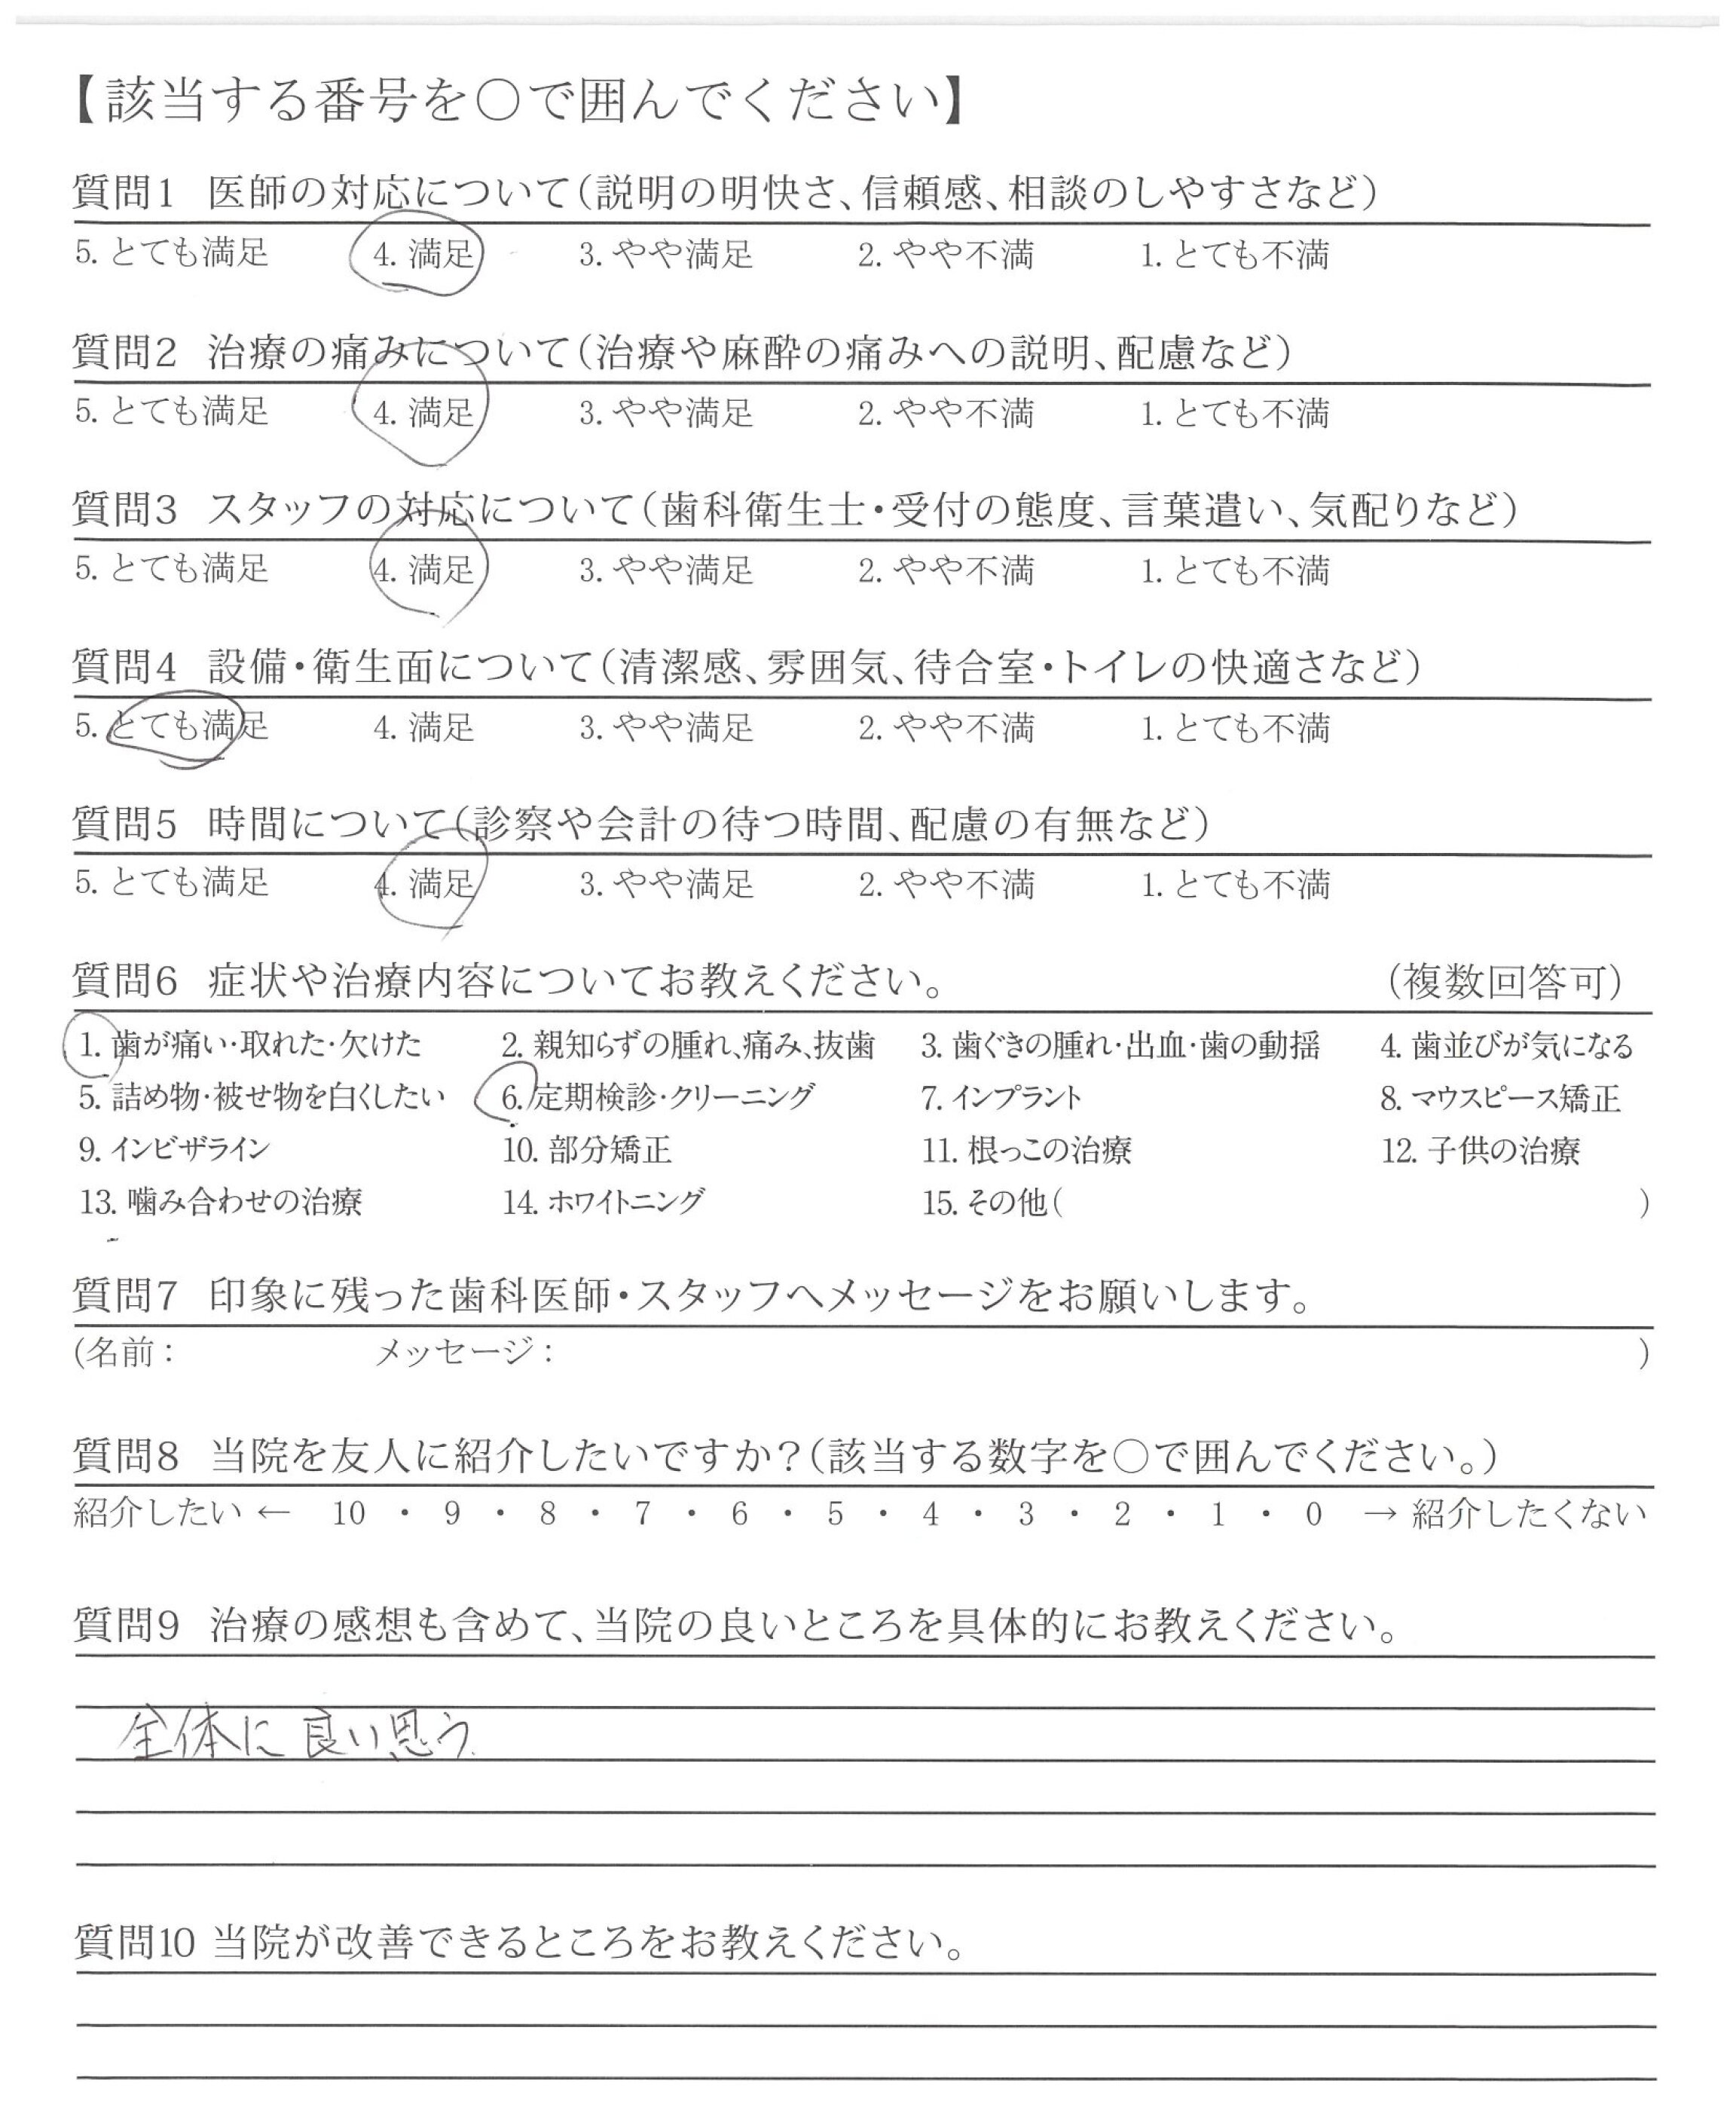 【該当する番号を○で囲んでください】
質問1 医師の対応について(説明の明快さ、信頼感、相談のしやすさなど)
5. とても満足 4. 満足 3. やや満足 2. やや不満 1. とても不満
質問2 治療の痛みについて(治療や麻酔の痛みへの説明、配慮など)
5. とても満足 4. 満足 3. やや満足 2. やや不満 1. とても不満
質問3 スタッフの対応について(歯科衛生士・受付の態度、言葉遣い、気配りなど)
5. とても満足 4. 満足 3. やや満足 2. やや不満 1. とても不満
質問4 設備・衛生面について(清潔感、雰囲気、待合室・トイレの快適さなど)
5. とても満足 4. 満足 3. やや満足 2. やや不満 1. とても不満
質問5 時間について(診察や会計の待つ時間、配慮の有無など)
5. とても満足 4. 満足 3. やや満足 2. やや不満 1. とても不満
質問6 症状や治療内容についてお教えください。 (複数回答可)
1. 歯が痛い・取れた・欠けた 2. 親知らずの腫れ、痛み、抜歯 3. 歯ぐきの腫れ・出血・歯の動揺 4. 歯並びが気になる
5. 詰め物・被せ物を白くしたい 6. 定期検診・クリーニング 7. インプラント 8. マウスピース矯正
9. インビザライン 10. 部分矯正 11. 根っこの治療 12. 子供の治療
13. 噛み合わせの治療 14. ホワイトニング 15. その他( )
質問7 印象に残った歯科医師・スタッフへメッセージをお願いします。
(名前: メッセージ: )
質問8 当院を友人に紹介したいですか?(該当する数字を○で囲んでください。)
紹介したい ← 10 ・ 9 ・ 8 ・ 7 ・ 6 ・ 5 ・ 4 ・ 3 ・ 2 ・ 1 ・ 0 → 紹介したくない
質問9 治療の感想も含めて、当院の良いところを具体的にお教えください。
全体に良い思う
質問10 当院が改善できるところをお教えください。